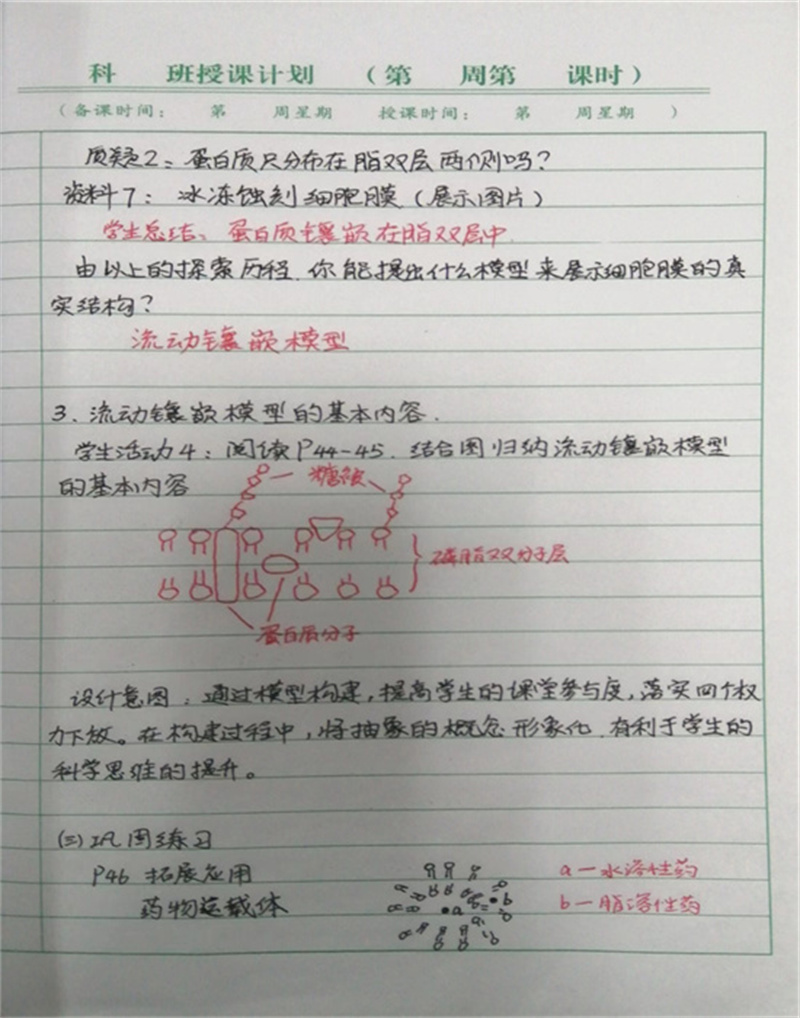 科 班授课计划 （第 周第 课时）
（备课时间： 第 周星期 授课时间： 第 周星期 ）
质疑2：蛋白质只分布在脂双层两侧吗？
资料7：冰冻蚀刻细胞膜（展示图片）
学生总结：蛋白质镶嵌在脂双层中
由以上的探索历程，你能提出什么模型来展示细胞膜的真
实结构？
流动镶嵌模型
3. 流动镶嵌模型的基本内容.
学生活动4：阅读P44-45. 结合图归纳流动镶嵌模型
的基本内容
糖链
磷脂双分子层
蛋白质分子
设计意图：通过模型构建，提高学生的课堂参与度，落实四个权
力下放。在构建过程中，将抽象的概念形象化，有利于学生的
科学思维的提升。
(三)巩固练习
P46 拓展应用
药物运载体
a
b
a—水溶性药
b—脂溶性药